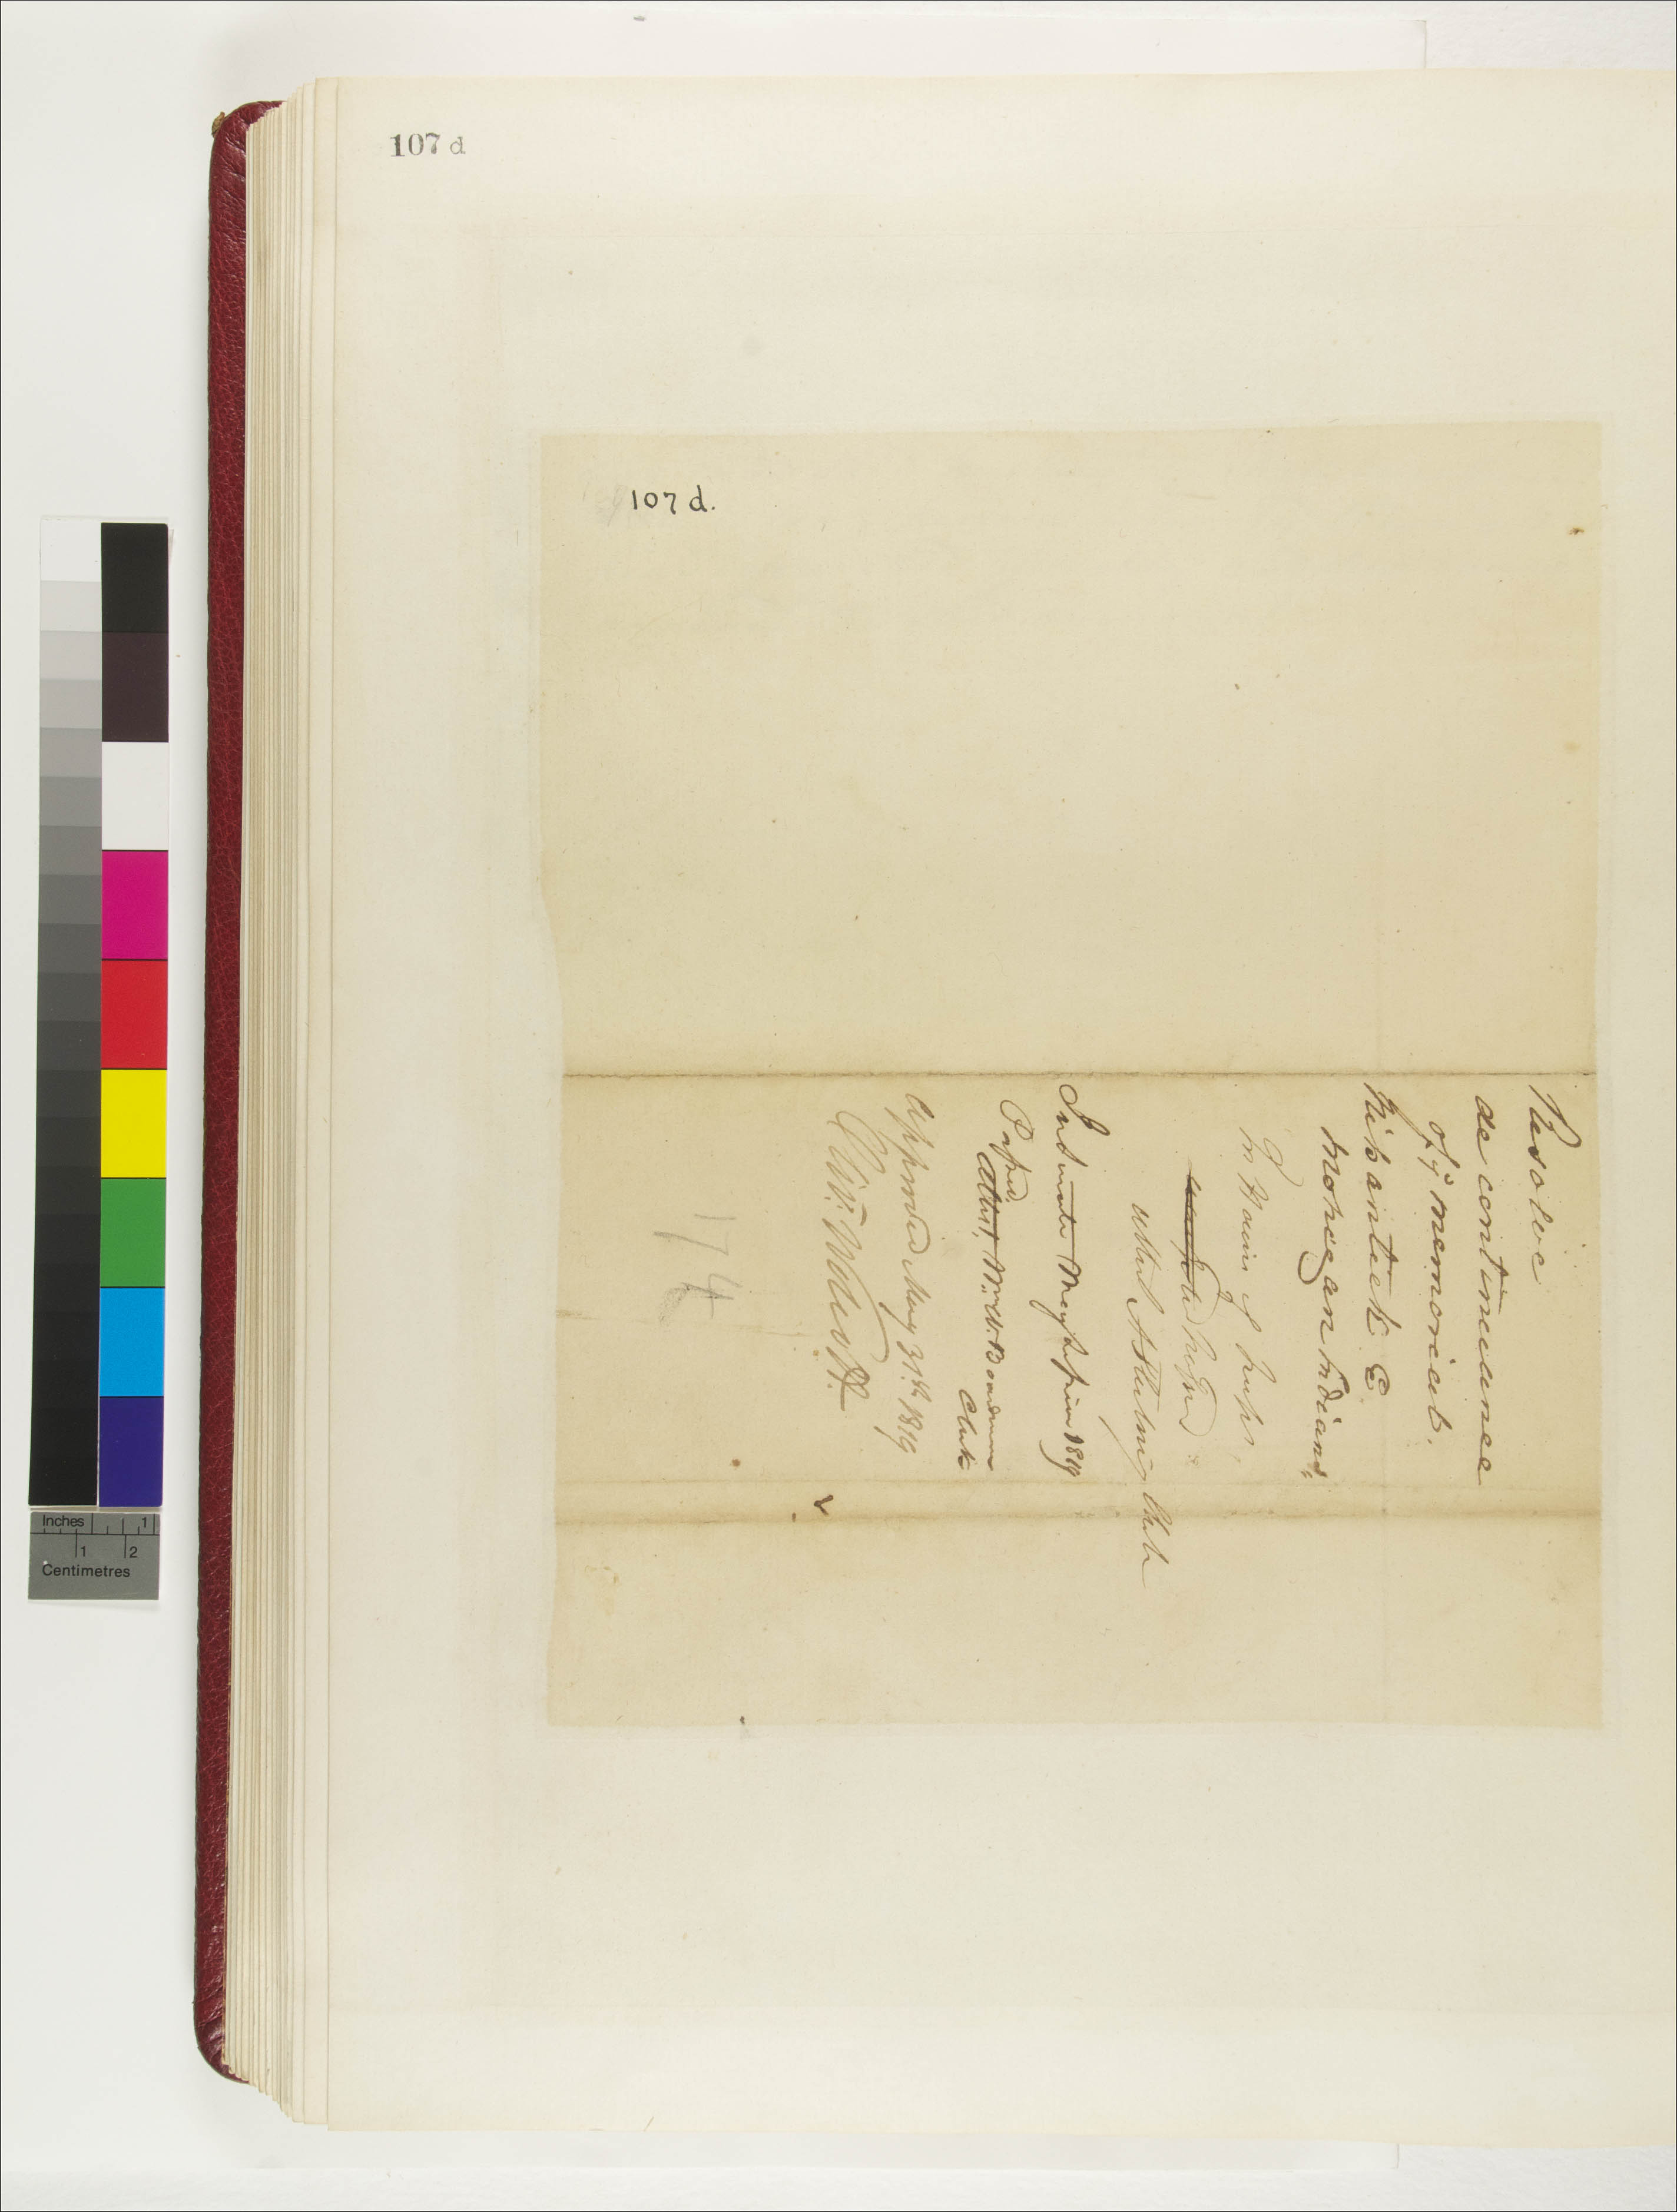 107 d
107 d.
Resolve
de continuance
of ye memorial.
Niantick &
Mohegan Indians.
In House of Reps.
Passed
Attest Clerk
In Senate May Session 1819
Passed
Attest, Wm. W. Boardman
Clerk
Approved May 31st. 1819
Oliv: Wolcott.
174
Inches 1
1 2
Centimetres